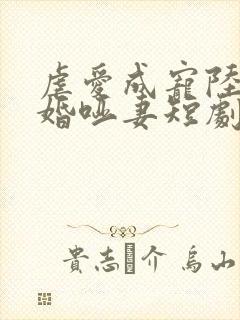 虐愛成寵陸
婚啞妻短劇
貴志 介 烏山